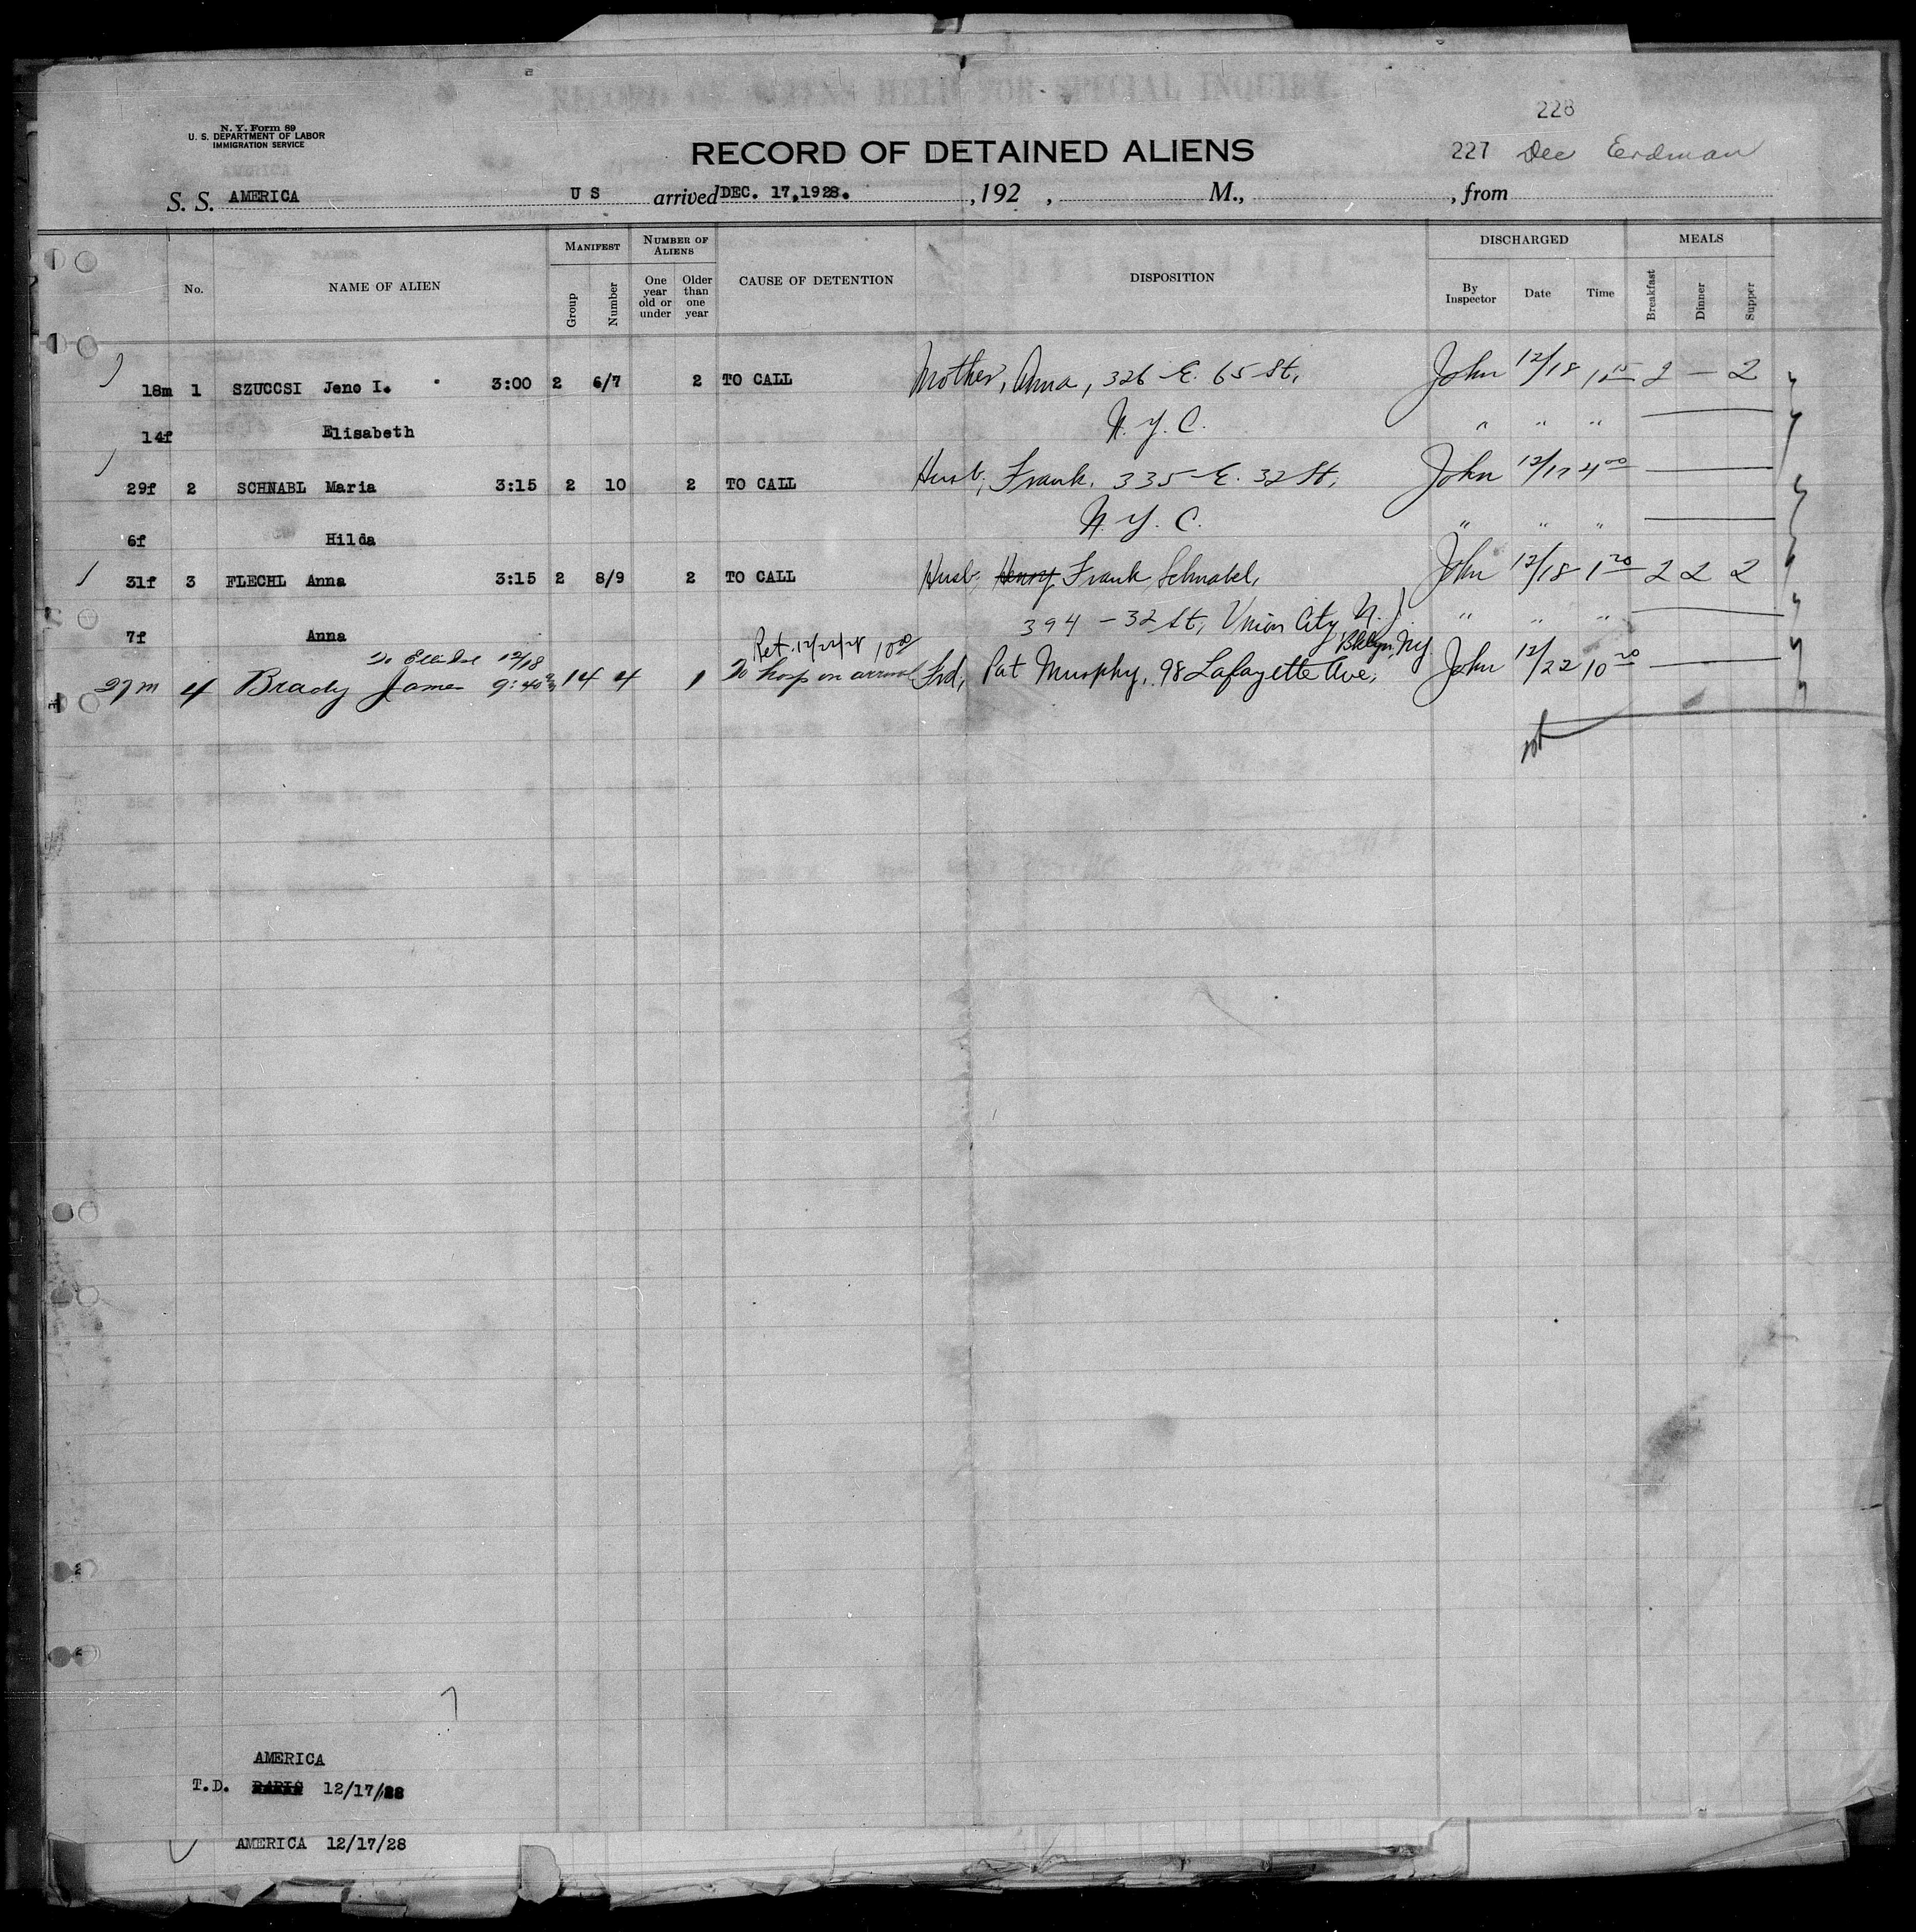 228
N. Y. Form 89
U. S. DEPARTMENT OF LABOR
IMMIGRATION SERVICE
RECORD OF DETAINED ALIENS
227 Dec Erdman
S. S. AMERICA U S arrived DEC. 17,1928. , 192 , M., , from
No. NAME OF ALIEN MANIFEST Group Number NUMBER OF ALIENS One year old or under Older than one year CAUSE OF DETENTION DISPOSITION DISCHARGED By Inspector Date Time MEALS Breakfast Dinner Supper
18m 1 SZUCCSI Jeno I. 3:00 2 6/7 2 TO CALL Mother, Anna, 326 E. 65 St, John 12/18 1 15 2 — 2
14f Elisabeth N. Y. C. " " "
29f 2 SCHNABL Maria 3:15 2 10 2 TO CALL Husb, Frank, 335 E. 32 St, John 12/17 4 00
6f Hilda N. Y. C. " " "
31f 3 FLECHL Anna 3:15 2 8/9 2 TO CALL Husb, Henry Frank Schnabel, John 12/18 1 20 2 2 2
7f Anna 394 - 32 St, Union City N. J. " " "
12/18 Ret. 12/22/28 10 00 Bklyn, NY.
27m 4 Brady James 9:40 14 4 1 To hosp on arrival Frd, Pat Murphy, 98 Lafayette Ave, John 12/22 10 20
AMERICA
T.D. PARIS 12/17/28
AMERICA 12/17/28